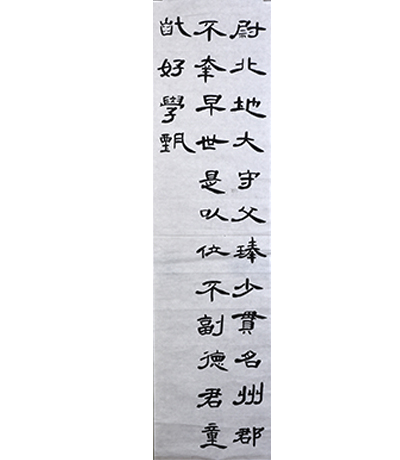 尉北地大守父琫少貫名州郡
不幸早世是以位不副德君童
齔好學甄